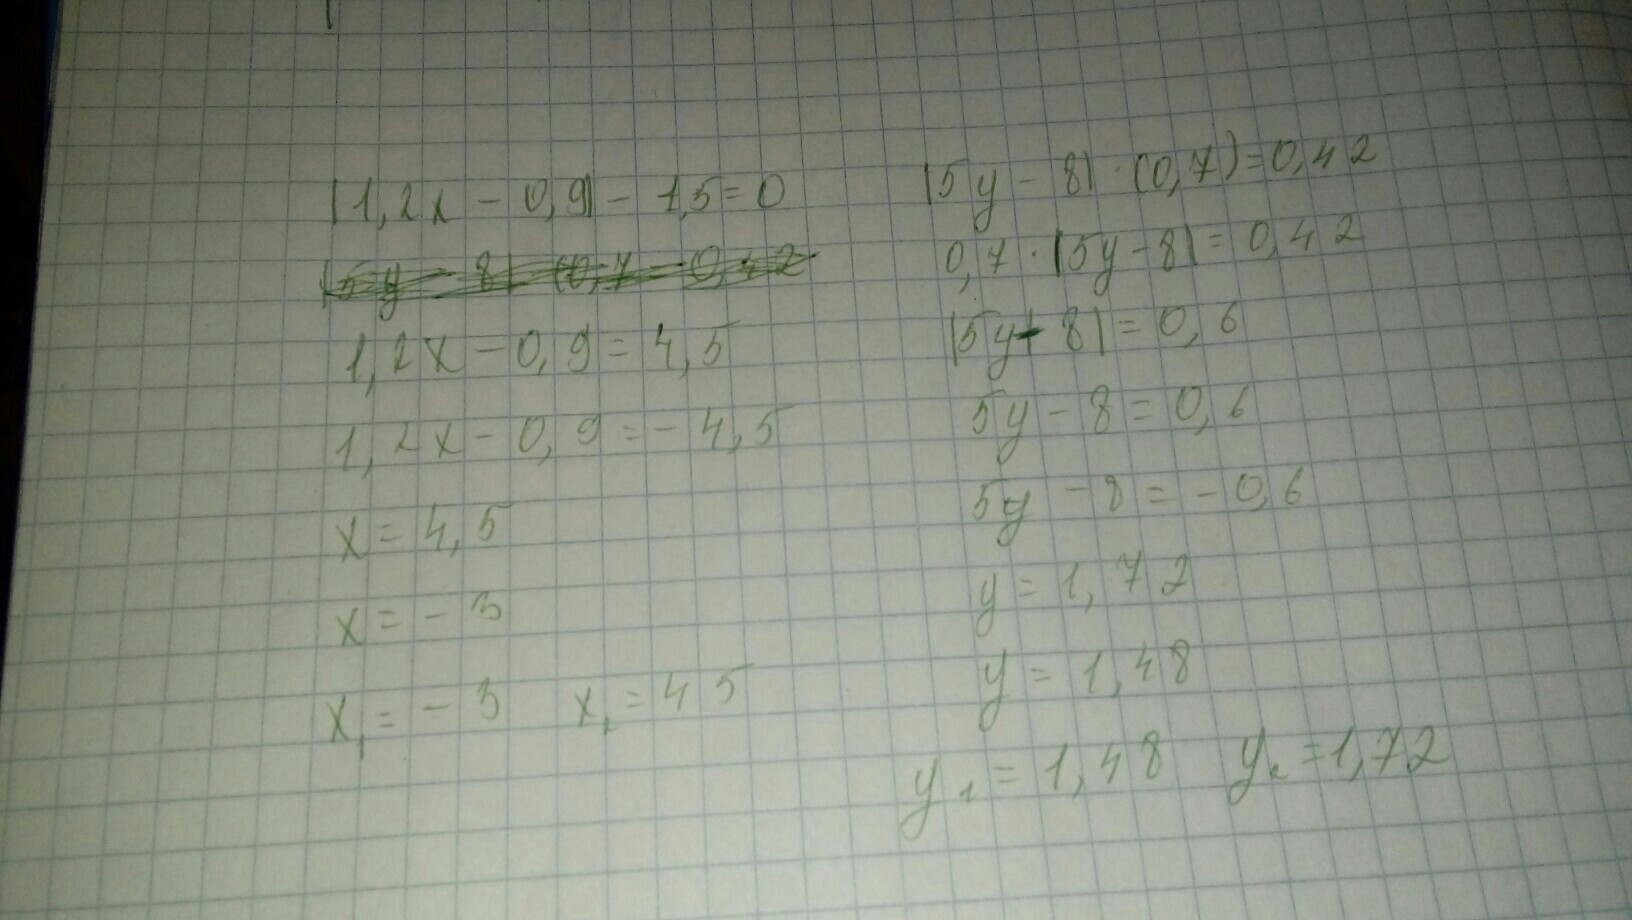 |1,2x - 0,9| - 1,5 = 0
|5y - 8| (0,7 = 0,42
1,2x - 0,9 = 4,5
1,2x - 0,9 = - 4,5
x = 4,5
x = - 3
x₁ = - 3 x₂ = 4 5
|5y - 8| · (0,7) = 0,42
0,7 · |5y - 8| = 0,42
|5y - 8| = 0,6
5y - 8 = 0,6
5y - 8 = - 0,6
y = 1,72
y = 1,48
y₁ = 1,48 y₂ = 1,72